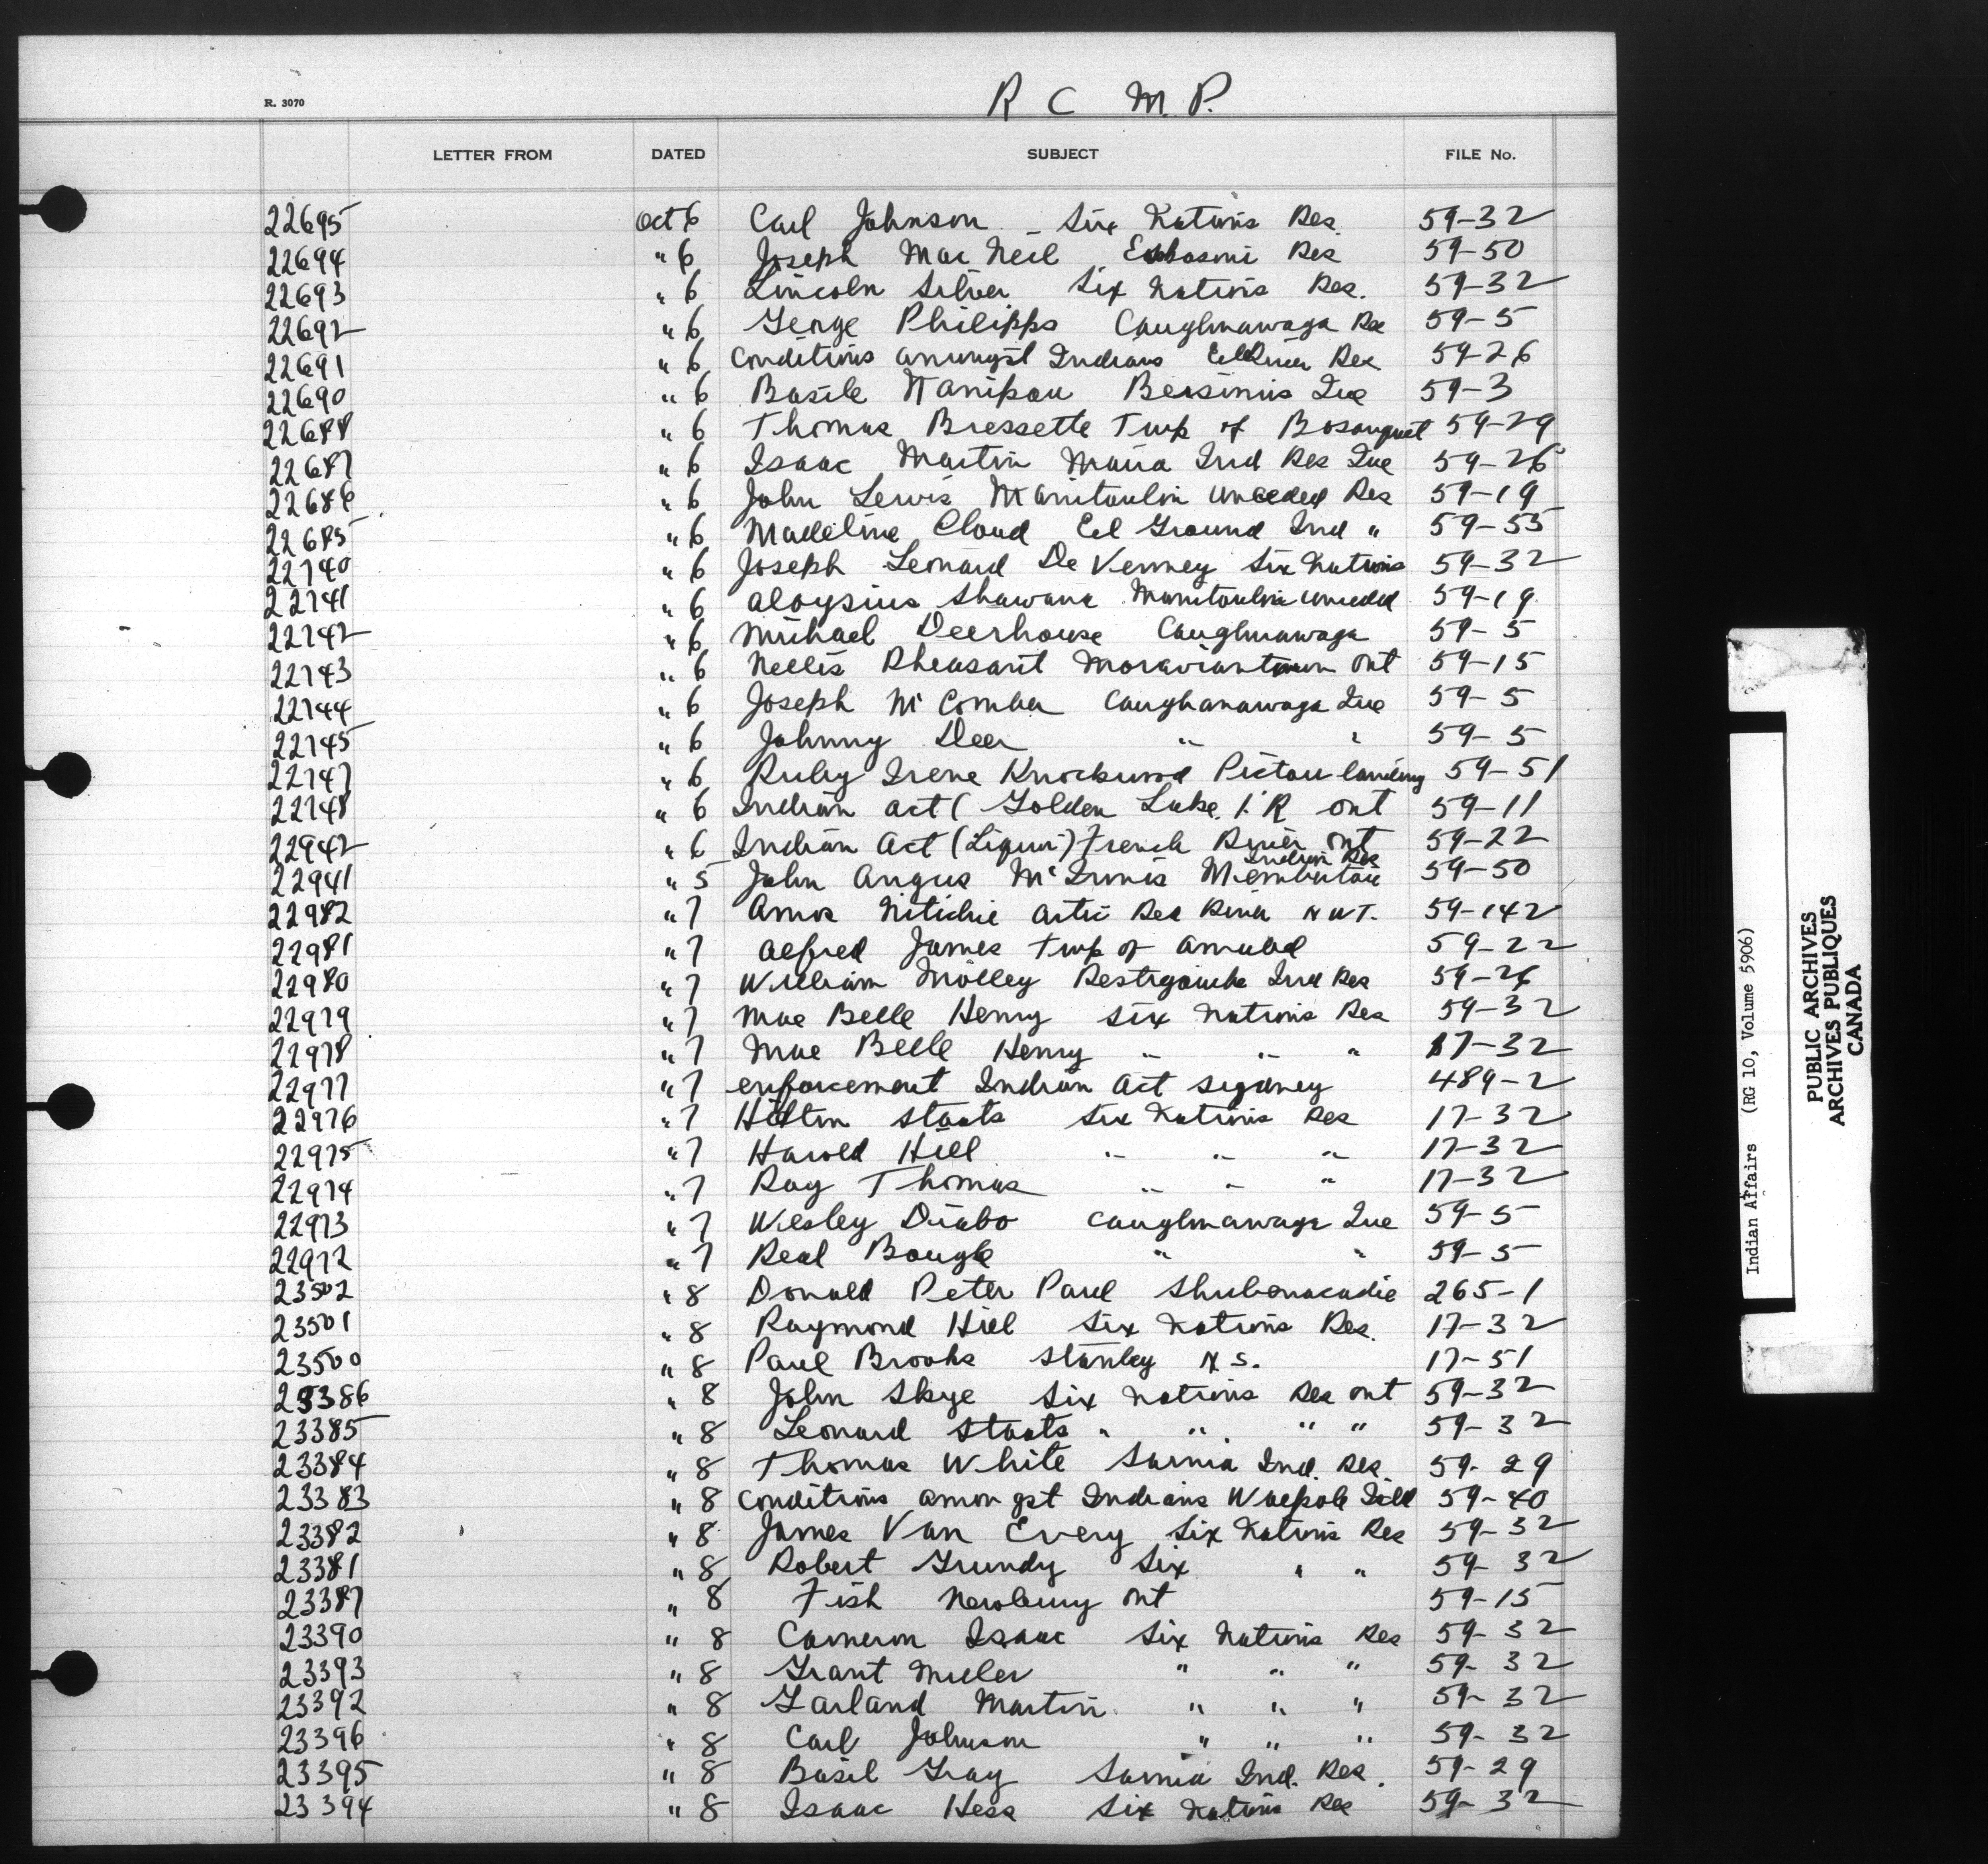 R. 3070
R C M. P.
LETTER FROM DATED SUBJECT FILE No.
22695 Oct 6 Carl Johnson - Six Nations Res. 59-32
22694 " 6 Joseph Mac Neil Eskasoni Res 59-50
22693 " 6 Lincoln Silver Six Nations Res. 59-32
22692 " 6 George Philipps Caughnawaga Res 59-5
22691 " 6 Conditions amongst Indians Eel River Res 59-26
22690 " 6 Basile Bersimis Que 59-3
22688 " 6 Thomas Bressette Twp of Bosanquet 59-29
22687 " 6 Isaac Martin Maria Ind Res Que 59-26
22686 " 6 John Lewis Manitoulin Unceded Res 59-19
22685 " 6 Madeline Cloud Eel Ground Ind " 59-55
22740 " 6 Joseph Leonard De Venney Six Nations 59-32
22741 " 6 Aloysius Shawana Manitoulin unceded 59-19
22742 " 6 Michael Deerhouse Caughnawaga 59-5
22743 " 6 Nellis Pheasant Moraviantown Ont 59-15
22744 " 6 Joseph McComber Caughanawaga Que 59-5
22745 " 6 Johnny Deer " " 59-5
22747 " 6 Ruby Irene Knockwood Pictou landing 59-51
22748 " 6 Indian Act ( Golden Lake I.R Ont 59-11
22942 " 6 Indian Act (Liquor) French River Ont 59-22
22941 " 5 John Angus McInnis Membertou Indian Res 59-50
22982 " 7 Amos Nitichie Artic Red River NWT. 59-142
22981 " 7 Alfred James Twp of 59-22
22980 " 7 William Molley Restigouche Ind Res 59-26
22979 " 7 Mae Belle Henry Six Nations Res 59-32
22978 " 7 Mae Belle Henry " " " 17-32
22977 " 7 enforcement Indian Act Sydney 489-2
22976 " 7 Hilton Staats Six Nations Res 17-32
22975 " 7 Harold Hill " " " 17-32
22974 " 7 Ray Thomas " " " 17-32
22973 " 7 Wesley Diabo Caughnawaga Que 59-5
22972 " 7 Real Bougie " " 59-5
23502 " 8 Donald Peter Paul Shubenacadie 265-1
23501 " 8 Raymond Hill Six Nations Res. 17-32
23500 " 8 Paul Brooks Stanley N S. 17-51
23386 " 8 John Skye Six Nations Res Ont 59-32
23385 " 8 Leonard Staats " " " " 59-32
23384 " 8 Thomas White Sarnia Ind. Res. 59-29
23383 " 8 Conditions amongst Indians Walpole Isld 59-40
23382 " 8 James Van Every Six Nations Res 59-32
23381 " 8 Robert Grundy Six " " 59-32
23387 " 8 Fish Newbury Ont 59-15
23390 " 8 Cameron Isaac Six Nations Res 59-32
23393 " 8 Grant Miller " " " 59-32
23392 " 8 Garland Martin " " " 59-32
23396 " 8 Carl Johnson " " " 59-32
23395 " 8 Basil Gray Sarnia Ind. Res. 59-29
23394 " 8 Isaac Hess Six Nations Res 59-32
Indian Affairs (RG 10, Volume 5906)
PUBLIC ARCHIVES
ARCHIVES PUBLIQUES
CANADA